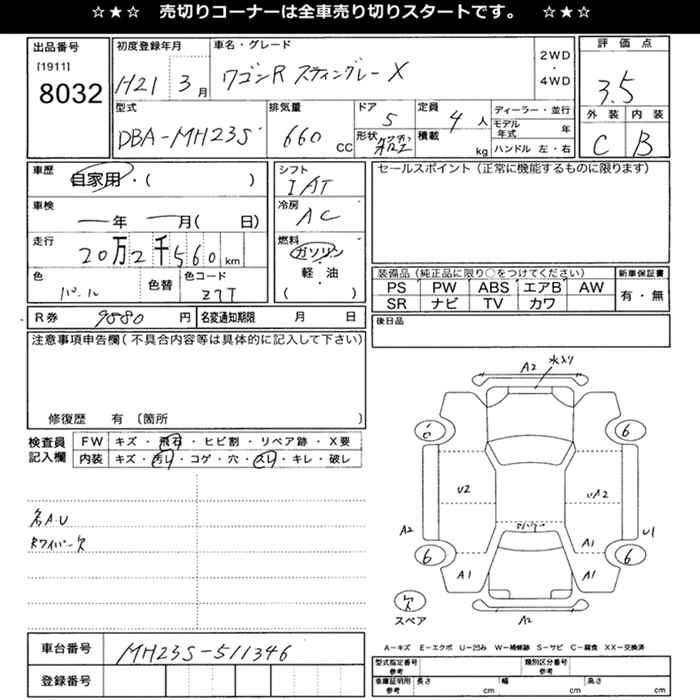 ☆★☆ 売切りコーナーは全車売り切りスタートです。 ☆★☆
出品番号
[1911]
8032
初度登録年月
H21 3月
車名・グレード
ワゴンR スティングレー X
2WD
・
4WD
評価点
3.5
外装 内装
C B
型式
DBA-MH23S
排気量
660 CC
ドア
5
形状
定員
4人
積載
kg
ディーラー・並行
モデル年式 年
ハンドル 左・右
車歴
自家用・( )
車検
年 月( 日)
走行
20万2千560km
色
パール
色替
色コード
Z7T
シフト
IAT
冷房
AC
燃料
ガソリン
軽・油
( )
セールスポイント(正常に機能するものに限ります)
装備品(純正品に限り○をつけてください) 新車保証書
PS PW ABS エアB AW 有・無
SR ナビ TV カワ
後日品
R券 9880円 名変通知期限 月 日
注意事項申告欄(不具合内容等は具体的に記入して下さい)
修復歴 有 〔箇所 〕
検査員記入欄
FW キズ・飛石・ヒビ割・リペア跡・X要
内装 キズ・汚レ・コゲ・穴・スレ・キレ・破レ
各A・U
Rワイパー欠
A2
水入り
6 6
U2
UA2
A2
U1
A1
6 6
A1 A1
欠
スペア
A2
A−キズ E−エクボ U−凹み W−補修跡 S−サビ C−腐食 XX−交換済
車台番号
MH23S-511346
登録番号
型式指定番号 参考
類別区分番号 参考
車庫証明用 参考
長さ cm 幅 cm 高さ cm